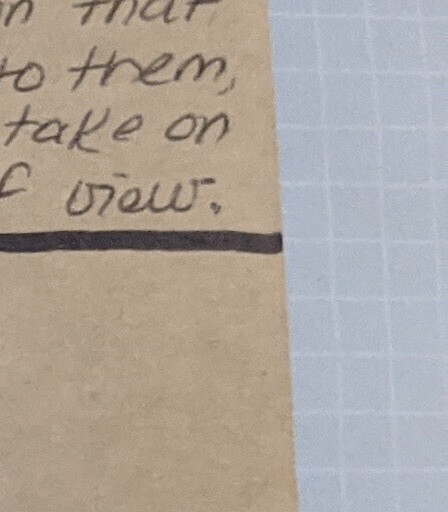 that
to them,
take on
view.